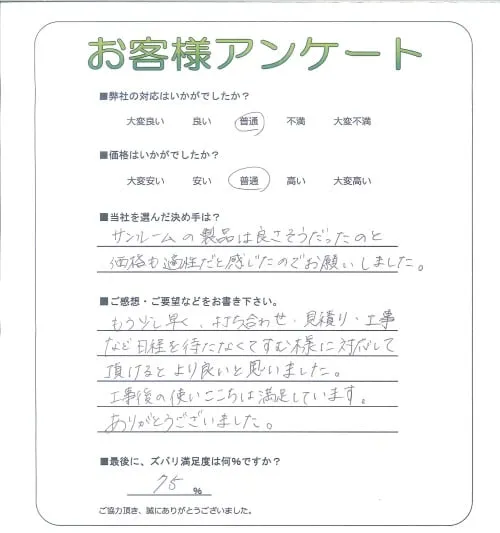 お客様アンケート
■弊社の対応はいかがでしたか？
大変良い 良い 普通 不満 大変不満
■価格はいかがでしたか？
大変安い 安い 普通 高い 大変高い
■当社を選んだ決め手は？
サンルームの製品は良さそうだったのと
価格も適性だと感じたのでお願いしました。
■ご感想・ご要望などをお書き下さい。
もう少し早く、打ち合わせ・見積り・工事
など日程を待たなくてすむ様に対応して
頂けるとより良いと思いました。
工事後の使いここちは満足しています。
ありがとうございました。
■最後に、ズバリ満足度は何%ですか？
75 %
ご協力頂き、誠にありがとうございました。